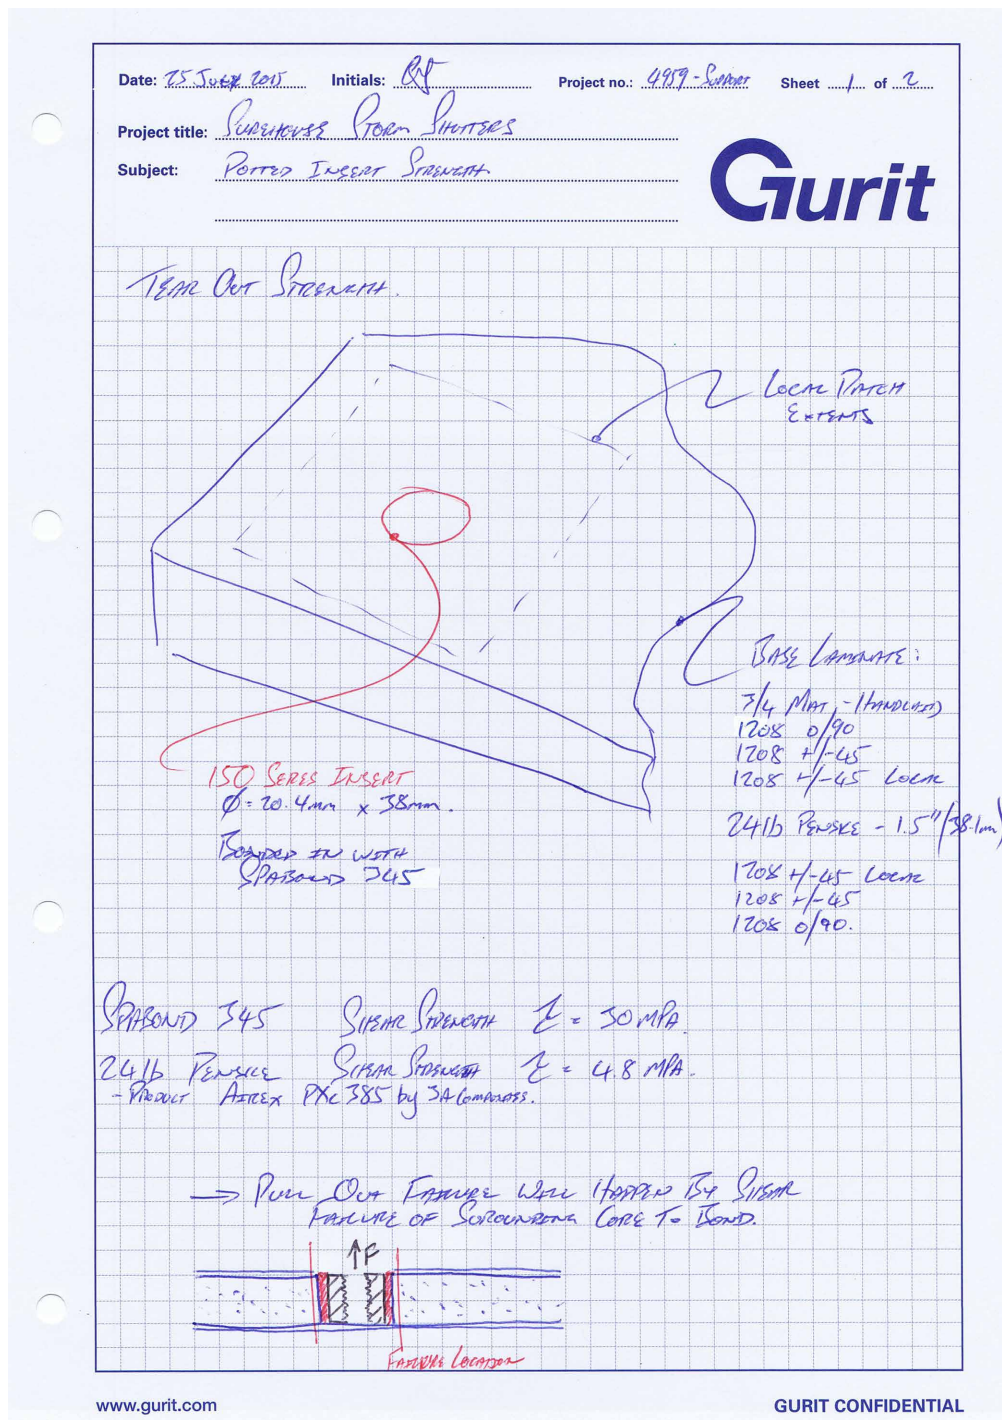 Date: 25 July 2015 Initials: Project no.: 4959-Support Sheet 1 of 2
Project title: Surehouse Storm Shutters
Subject: Potted Insert Strength.
Gurit
Tear Out Strength.
Local Patch
Extents
Base Laminate:
3/4 Mat - Handlaid
1208 0/90
1208 +/-45
1208 +/-45 Local
24lb Penske - 1.5"/38.1mm
1208 +/-45 Local
1208 +/-45
1208 0/90.
150 Seres Insert
Ø = 20.4mm x 38mm.
Bonded in with
Spabond 345
Spabond 345 Shear Strength τ = 30 MPa.
24lb Penske Shear Strength τ = 4.8 MPa.
- Product Airex PXc 385 by 3A Composites.
→ Pull Out Failure Will Happen By Shear
Failure of Surounding Core To Bond.
↑F
Failure Location
www.gurit.com GURIT CONFIDENTIAL